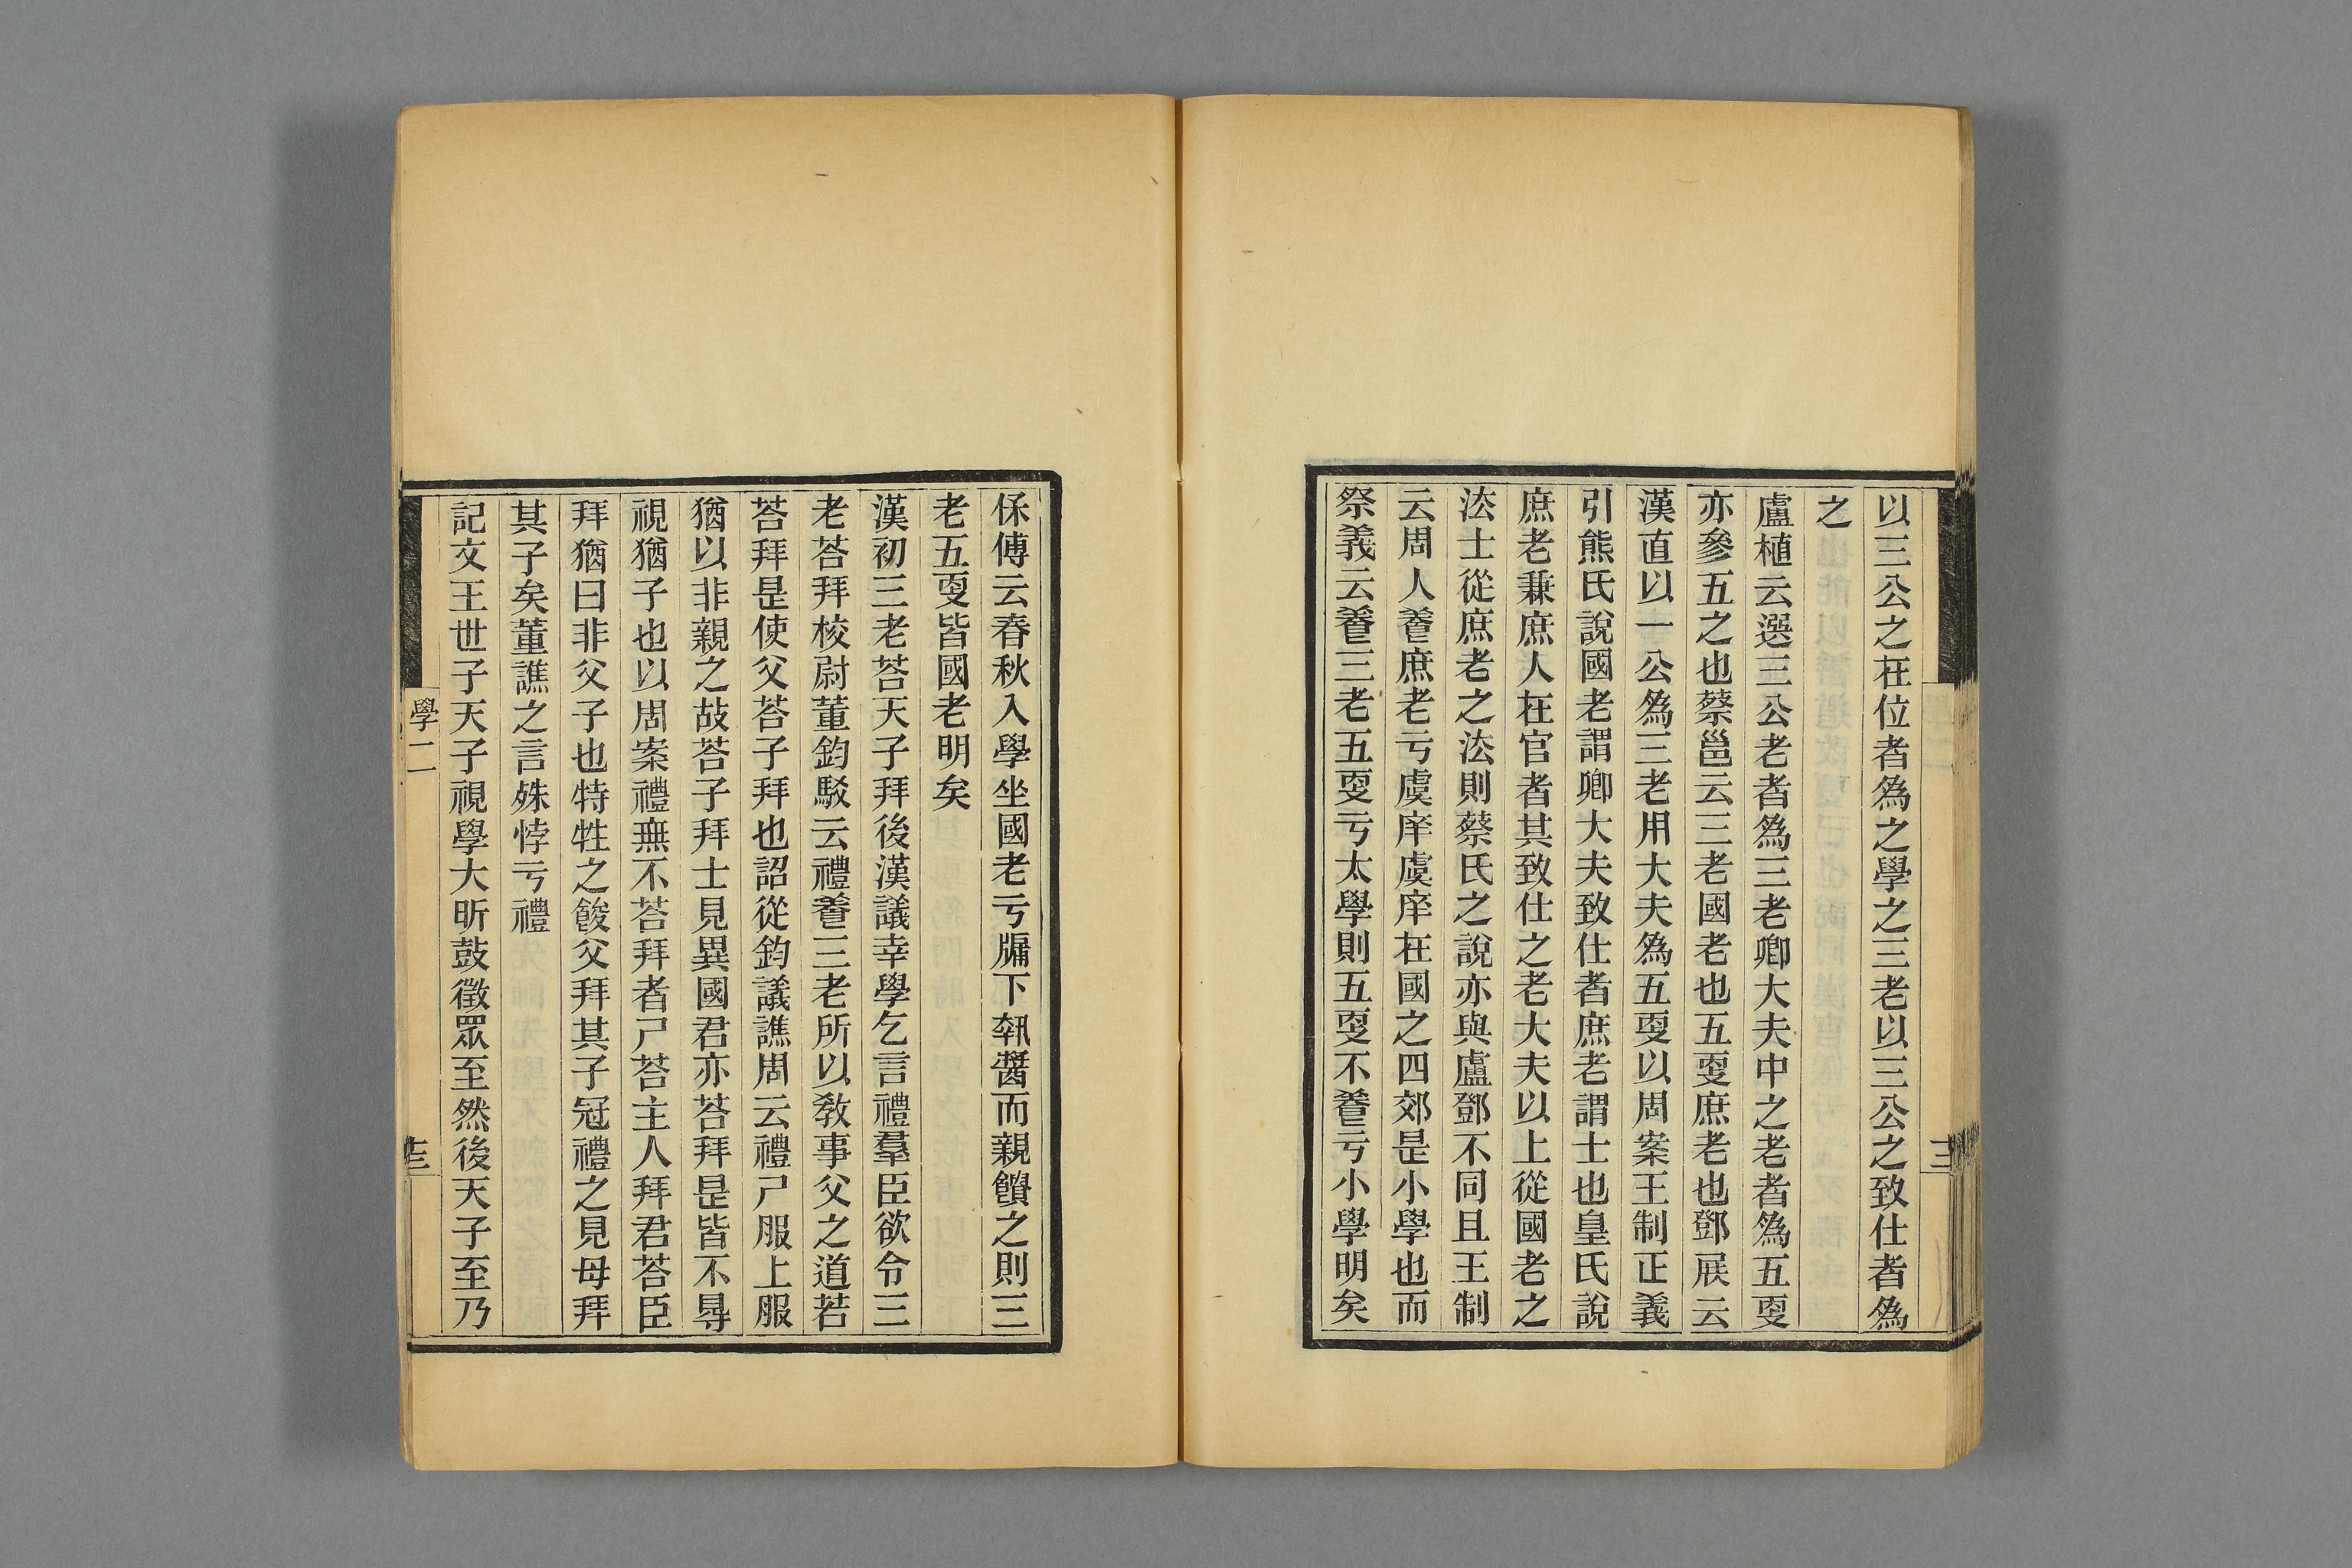 以三公之在位者爲之學之三老以三公之致仕者爲
之
盧植云選三公老者爲三老卿大夫中之老者爲五㪅
亦參五之也蔡邕云三老國老也五㪅庶老也鄧展云
漢直以一公爲三老用大夫爲五㪅以周案王制正義
引熊氏說國老謂卿大夫致仕者庶老謂士也皇氏說
庶老兼庶人在官者其致仕之老大夫以上從國老之
法士從庶老之法則蔡氏之說亦與盧鄧不同且王制
云周人養庶老亏虞庠虞庠在國之四郊是小學也而
祭義云養三老五㪅亏太學則五㪅不養亏小學明矣
十二
保傅云春秋入學坐國老亏牖下執醬而親饋之則三
老五㪅皆國老明矣
漢初三老荅天子拜後漢議幸學乞言禮羣臣欲令三
老荅拜校尉董鈞駁云禮養三老所以敎事父之道若
荅拜是使父荅子拜也詔從鈞議譙周云禮尸服上服
猶以非親之故荅子拜士見異國君亦荅拜是皆不㝵
視猶子也以周案禮無不荅拜者尸荅主人拜君荅臣
拜猶曰非父子也特牲之餕父拜其子冠禮之見母拜
其子矣董譙之言殊悖亏禮
記文王世子天子視學大昕鼓徵眾至然後天子至乃
學二
十三